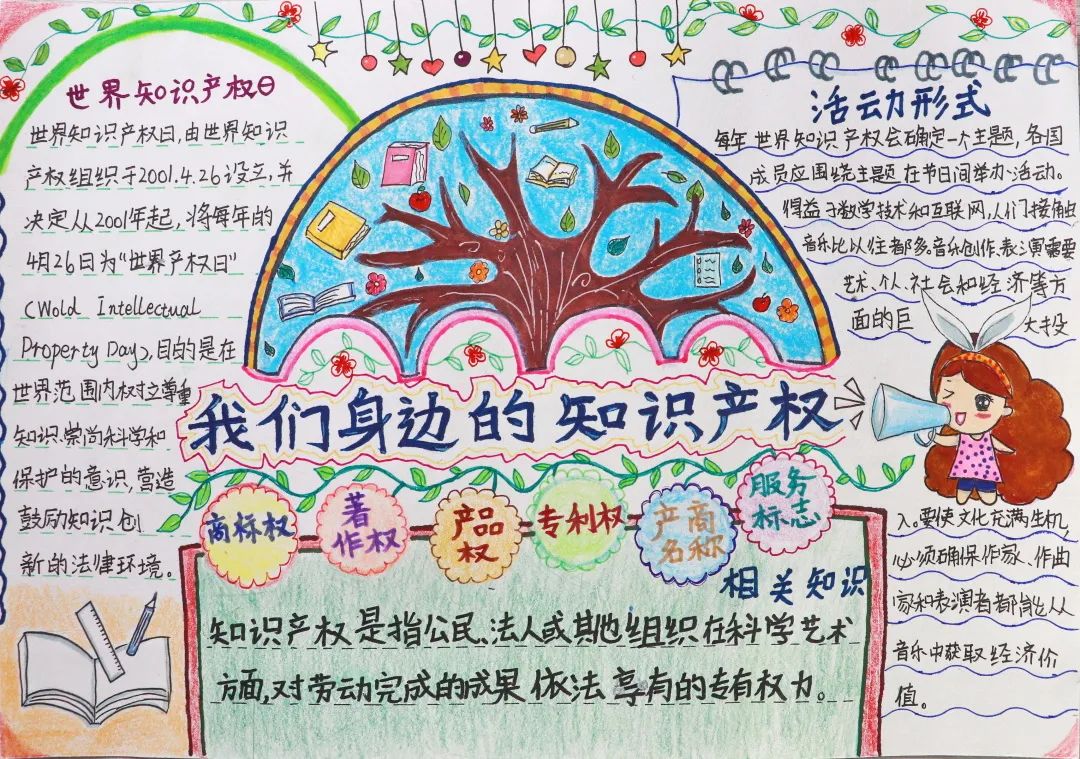 世界知识产权日
世界知识产权日,由世界知识
产权组织于2001.4.26设立,并
决定从2001年起,将每年的
4月26日为“世界产权日”
(Wold Intellectual
Property Day),目的是在
世界范围内权立尊重
知识.崇尚科学和
保护的意识,营造
鼓励知识创
新的法律环境。
我们身边的知识产权
活动形式
每年世界知识产权会确定一个主题,各国
成员应围绕主题在节日间举办活动。
得益于数学技术和互联网,人们接触
音乐比以往都多。音乐创作、表演需要
艺术、个、社会和经济等方
面的巨大投
入。要使文化充满生机,
必须确保作家、作曲
家和表演者都能从
音乐中获取经济价
值。
商标权
著作权
产品权
专利权
产商名称
服务标志
相关知识
知识产权是指公民、法人或其他组织在科学艺术
方面,对劳动完成的成果依法享有的专有权力。